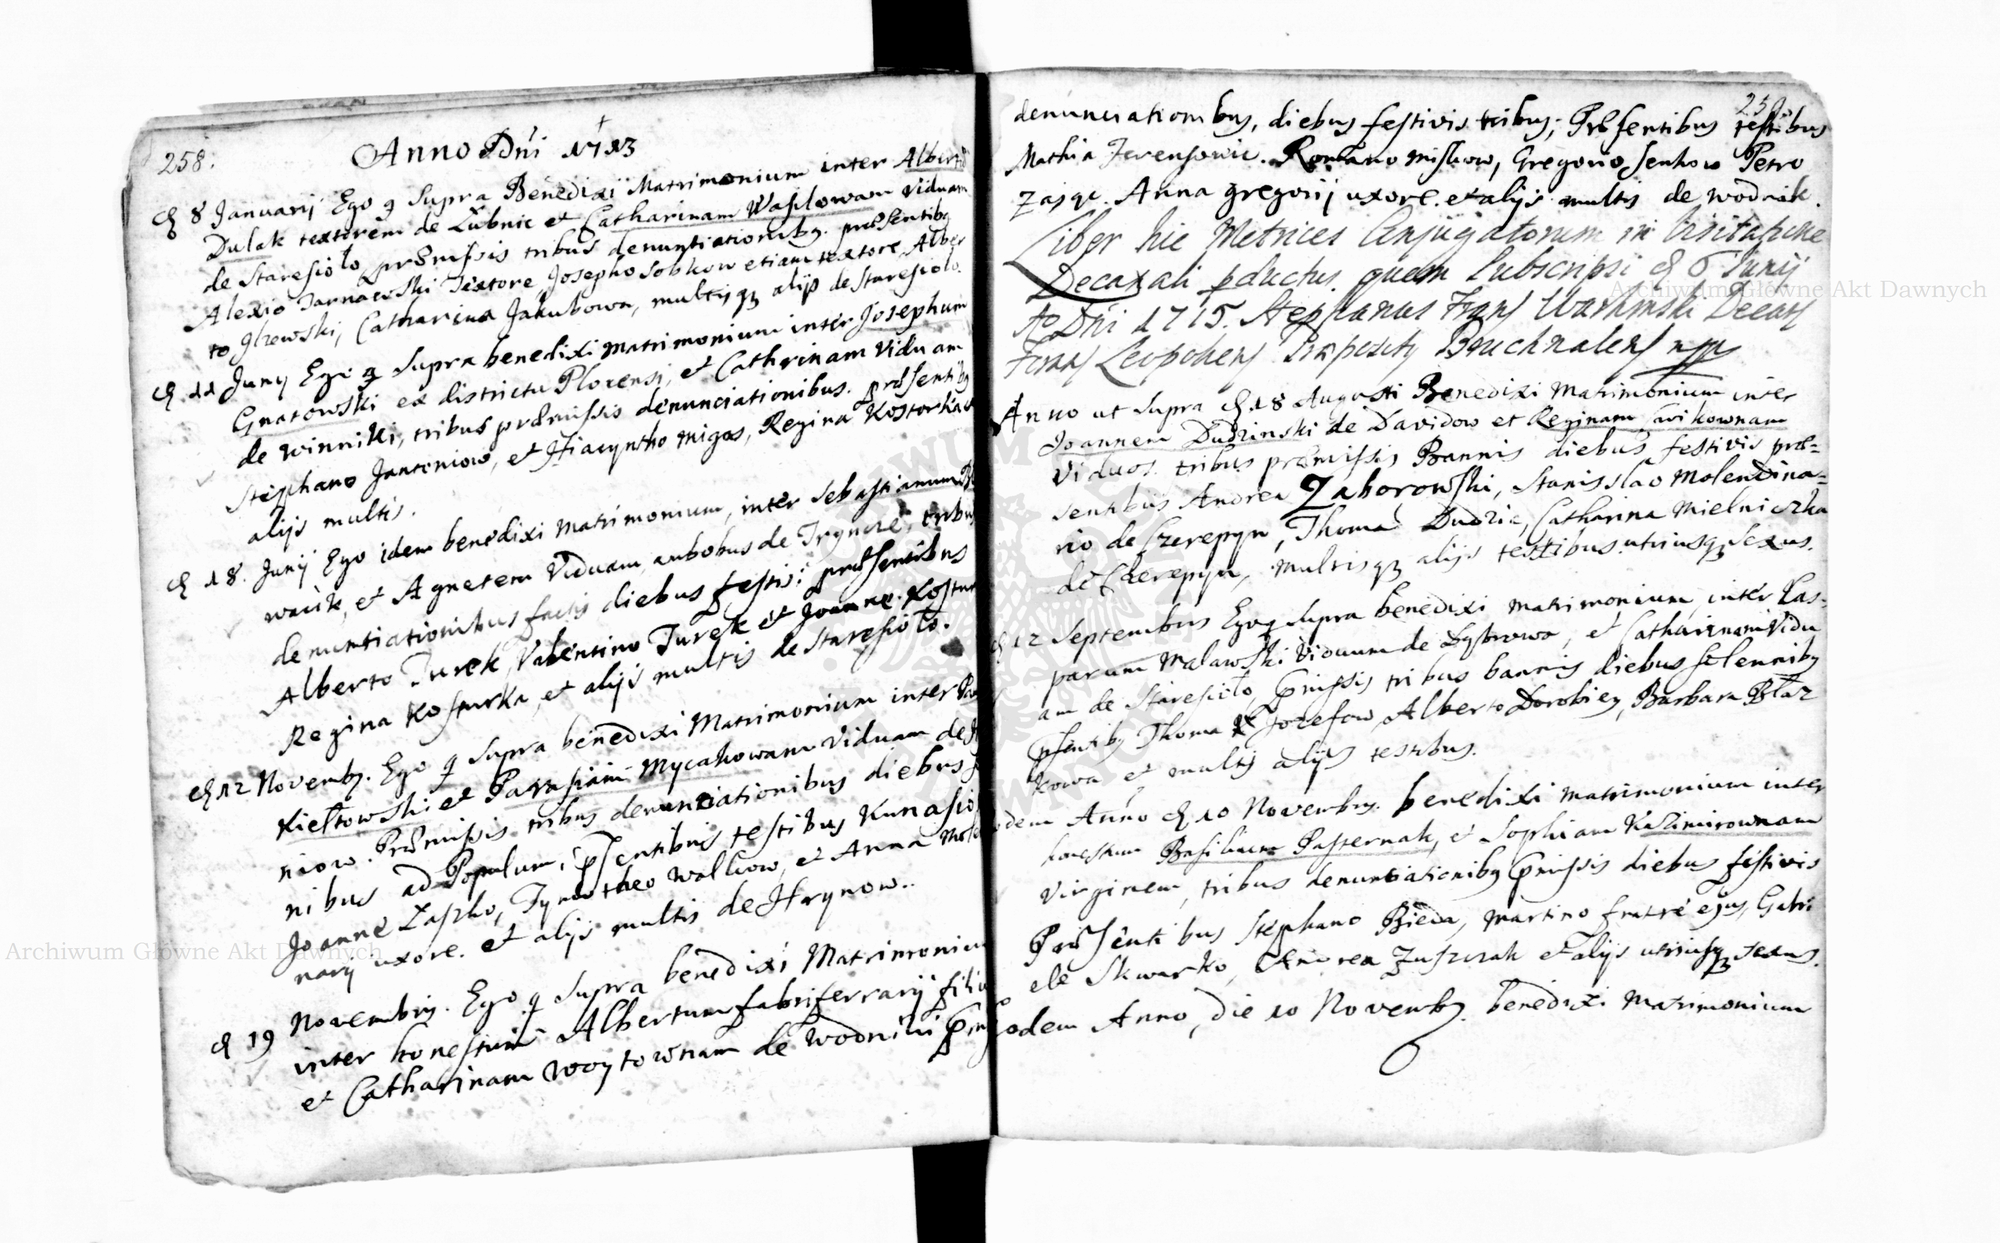 258.
Anno Dni 1713
8 Januarij Ego q Supra Benedixi Matrimonium inter Albertū
Dulak textorem de Lubnie et Catharinam Wasilowam viduam
de Staresioło præmissis tribus denuntiationibq. præsentibq
Alexio Tarnawski Textore, Josepho Sobkow etiam textore, Alber
to Glzewski, Catharina Jakubowa, multisqz alijs de Staresioło.
11 Junij Ego q Supra benedixi matrimonium inter Josephum
Gnatowski ex districtu Plocensi, et Cathrinam viduam
de Winniki, tribus præmissis denunciationibus. præsentibq
Stephano Jantoniow, et Hiacyntho Migas, Regina Kosturka et
alijs multis.
18. Junij Ego idem benedixi Matrimonium, inter Sebastianum
et Agnetem Viduam, ambobus de Tryncze, tribus
denuntiationibus factis diebus festis: præsentibus
Alberto Turek Valentino Turek et Joanne Kostur
Regina Kosturka, et alijs multis de Staresioło.
12 Novembq. Ego q Supra benedixi Matrimonium inter
Kiełtowski et Parasiam Mycakowam Viduam de
niow. Præmissis tribus denunciationibus diebus
nibus ad Populum, psentibus testibus
Joanne Laszko, Tymotheo Walkow, et Anna
narij uxore. et alijs multis de Hrynow..
19 Novembris. Ego q Supra benedixi Matrimonium
inter honestum Albertum fabri ferrarij
et Catharinam Woytownam de Wodniki
259
denunciationibus, diebus festivis tribus; Præsentibus testibus
Mathia Romano Miskow, Gregorio Senkow Petro
Anna Gregorij uxore. et alijs multis de Wodnik.
Liber hic Metrices Conjugatorum in Visitatione
Decanali pductus. quem Subscripsi 6 Junij
Ao Dni 1715. Stephanus Franc Decan
Præposity Bruchnalens mpp
Anno ut Supra 18 Augusti Benedixi Matrimonium inter
Joannem Dudzinski de Davidow et Reginam
Viduos. tribus præmissis Bannis diebus festivis præ=
sentibus Andrea Zaborowski, Stanislao Molendina=
rio de Czerepyn, Thoma Dudzic, Catharina Mielniczka
de Czerepyn, multisqz alijs testibus utriusqz Sexus.
12 Septembris Ego q Supra benedixi matrimonium inter Cas=
parum Malawski viduum de Dąbrowa, et Catharinam Vidu
am de Staresioło pmissis tribus bannis diebus solennibq
psentibq Thoma Jozefow, Alberto Dorobiey, Barbara Błaz
kowa et multis alijs testibus.
odem Anno 10 Novembrq. benedixi matrimonium inter
honestum Basilium Pasternak, et Sophiam Kazimirownam
Virginem, tribus denuntiationibq pmissis diebus festivis
Præsentibus Stephano Bieda, Martino fratre ejus, Gabri
ele Skwarko, Andrea et alijs utriusqz Sexus.
odem Anno, die 10 Novembq. benedixi Matrimonium
Archiwum Główne Akt Dawnych
Archiwum Główne Akt Dawnych